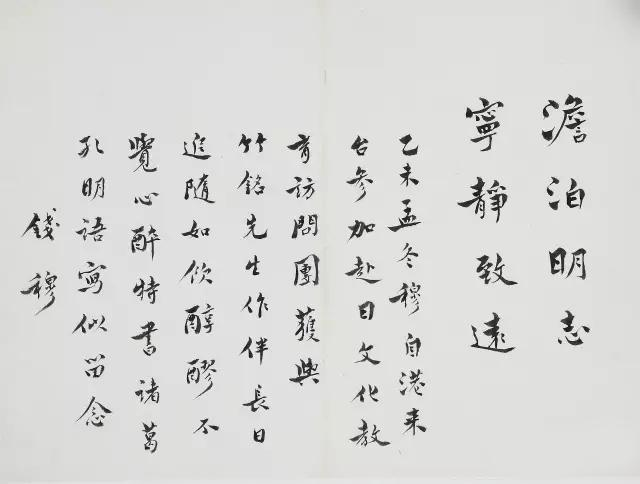 澹泊明志
寧靜致遠
乙未孟冬穆自港来
台參加赴日文化教
育訪問團獲與
竹銘先生作伴長日
追随如飲醇醪不
覺心醉特書諸葛
孔明語寫似留念
錢穆